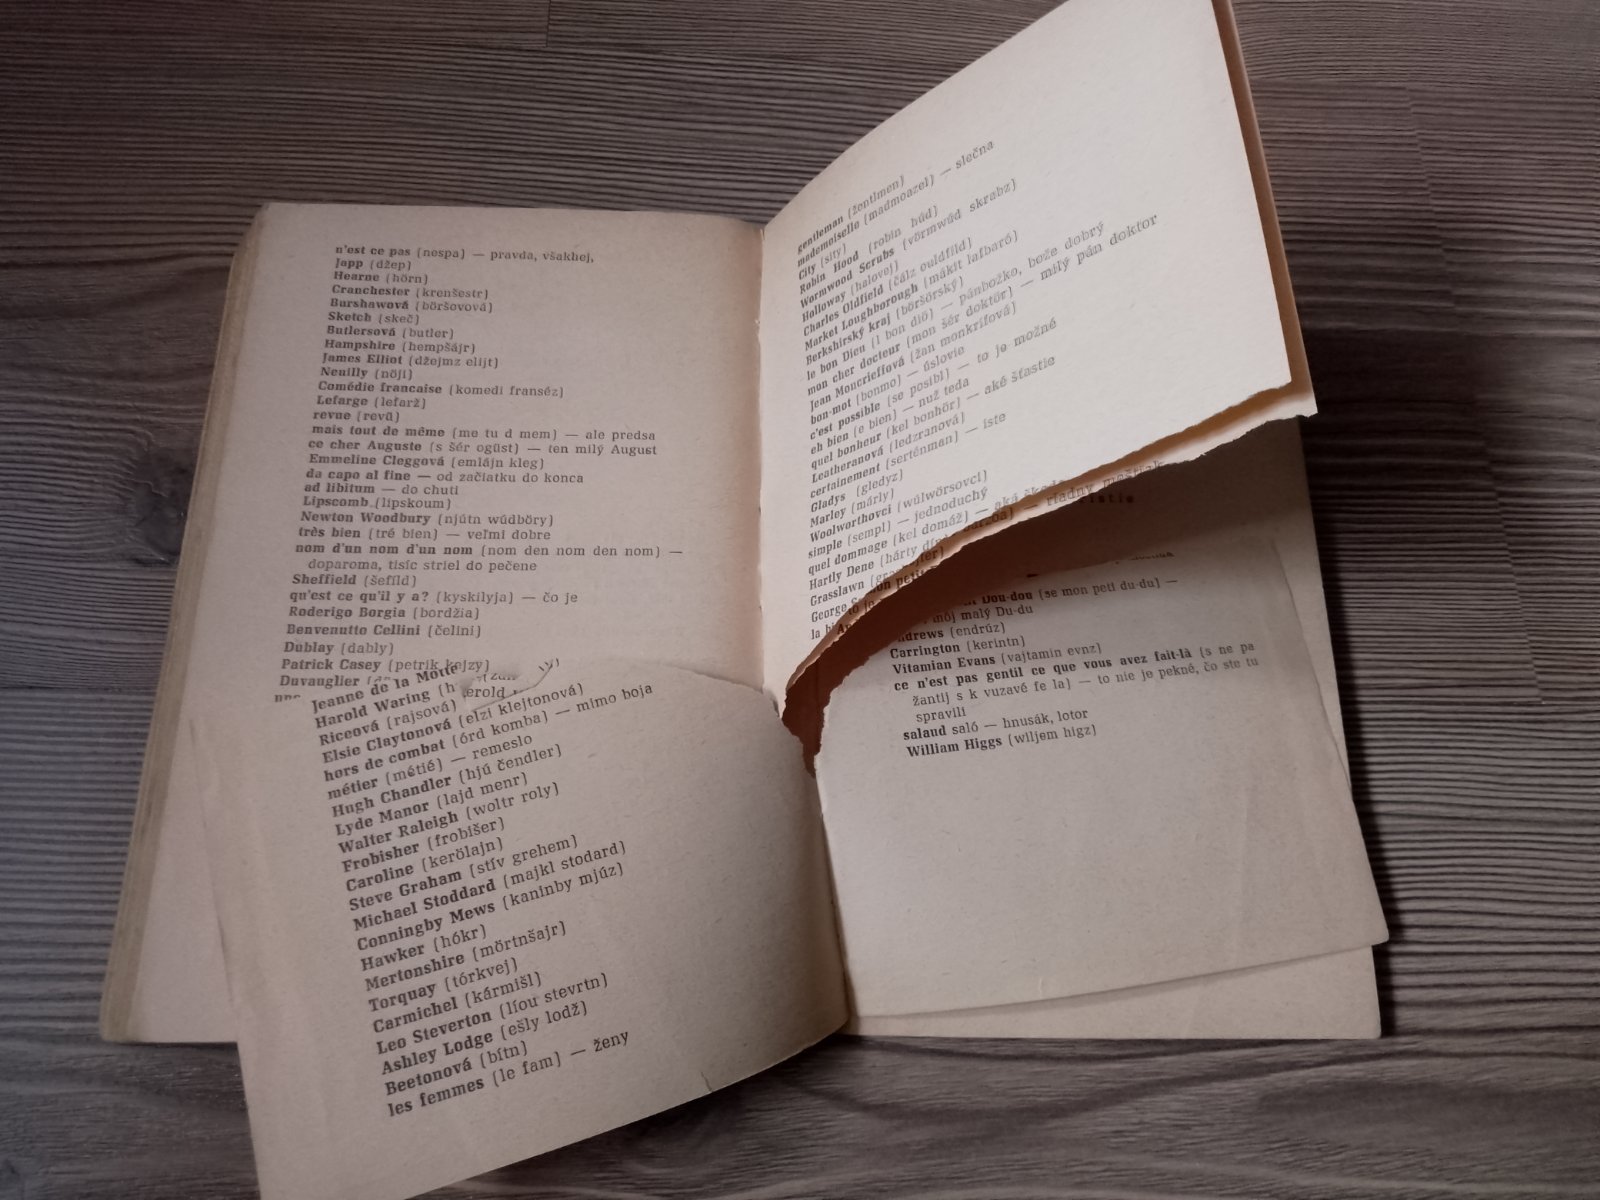 n'est ce pas (nespa) — pravda, všakhej,
Japp (džep)
Hearne (hörn)
Cranchester (krenšestr)
Burshawová (böršovová)
Sketch (skeč)
Butlersová (butler)
Hampshire (hempšájr)
James Elliot (džejmz elijt)
Neuilly (nöji)
Comédie francaise (komedi franséz)
Lefarge (lefarž)
revue (revü)
mais tout de même (me tu d mem) — ale predsa
ce cher Auguste (s šér ogüst) — ten milý August
Emmeline Cleggová (emlájn kleg)
da capo al fine — od začiatku do konca
ad libitum — do chuti
Lipscomb (lipskoum)
Newton Woodbury (njútn wúdböry)
très bien (tré bien) — veľmi dobre
nom d'un nom d'un nom (nom den nom den nom) —
doparoma, tisíc striel do pečene
Sheffield (šefíld)
qu'est ce qu'il y a? (kyskilyja) — čo je
Roderigo Borgia (bordžia)
Benvenutto Cellini (čelini)
Dublay (dably)
Patrick Casey (petrik kejzy)
Duvauglier
Jeanne de la Motte
Harold Waring
Riceová (rajsová)
Elsie Claytonová (elzi klejtonová)
hors de combat (órd komba) — mimo boja
métier (métié) — remeslo
Hugh Chandler (hjú čendler)
Lyde Manor (lajd menr)
Walter Raleigh (woltr roly)
Frobisher (frobišer)
Caroline (kerölajn)
Steve Graham (stív grehem)
Michael Stoddard (majkl stodard)
Conningby Mews (kaninby mjúz)
Hawker (hókr)
Mertonshire (mörtnšajr)
Torquay (tórkvej)
Carmichel (kármišl)
Leo Steverton (líou stevrtn)
Ashley Lodge (ešly lodž)
Beetonová (bítn)
les femmes (le fam) — ženy
gentleman (žentlmen)
mademoiselle (madmoazel) — slečna
City (sity)
Robin Hood (robin húd)
Wormwood Scrubs (vörmwúd skrabz)
Holloway (halovej)
Charles Oldfield (čálz ouldfíld)
Market Loughborough (mákit lafbaró)
Berkshirský kraj (böršörský)
le bon Dieu (l bon dió) — pánbožko, bože dobrý
mon cher docteur (mon šér doktör) — milý pán doktor
Jean Moncrieffová (žan monkrifová)
bon-mot (bonmo) — úslovie
c'est possible (se posibl) — to je možné
eh bien (e bien) — nuž teda
quel bonheur (kel bonhör) — aké šťastie
Leatheranová (ledzranová)
certainement (serténman) — iste
Gladys (gledyz)
Marley (márly)
Woolworthovci (wúlwörsovci)
simple (sempl) — jednoduchý
quel dommage (kel domáž) — aká
Hartly Dene (hárty — riadny
Grasslawn
George
la
Dou-dou (se mon peti du-du) —
môj malý Du-du
(endrúz)
Carrington (kerintn)
Vitamian Evans (vajtamin evnz)
ce n'est pas gentil ce que vous avez fait-là (s ne pa
žantij s k vuzavé fe la) — to nie je pekné, čo ste tu
spravili
salaud saló — hnusák, lotor
William Higgs (wiljem higz)